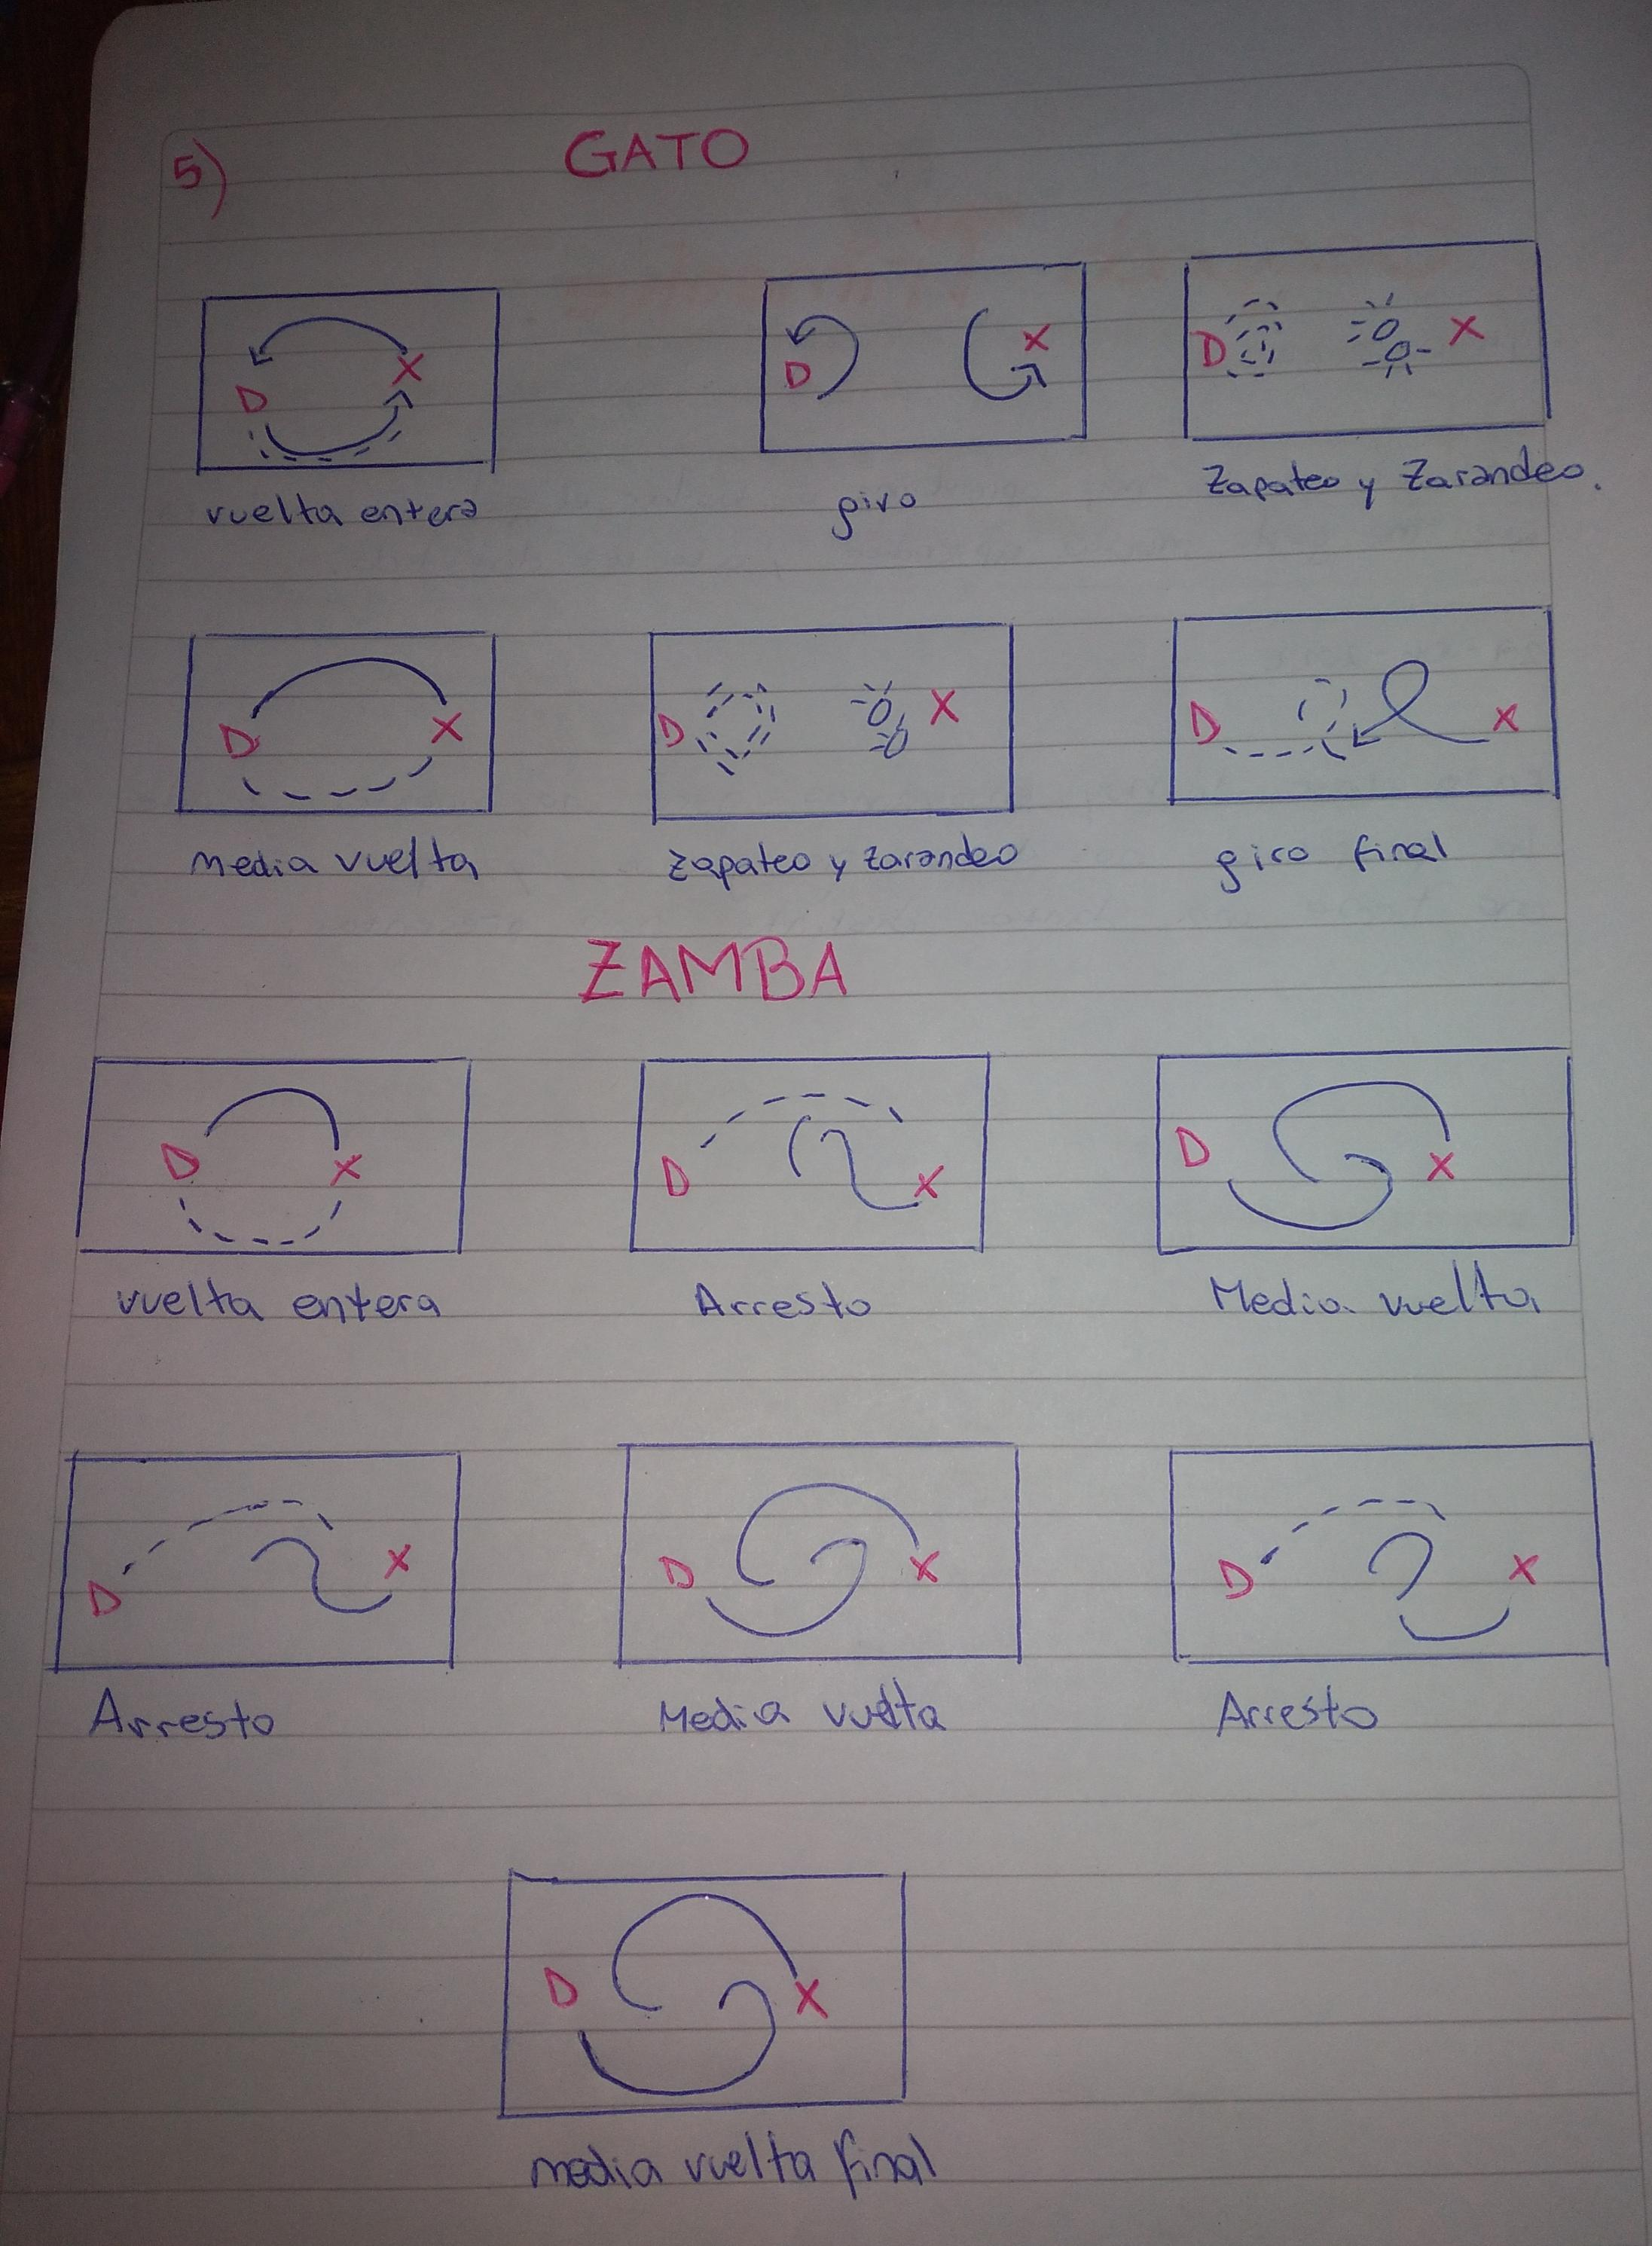 5) GATO
D X
D X
D X
vuelta entera
giro
Zapateo y Zarandeo.
D X
D X
D X
media vuelta
zapateo y zarandeo
giro final
ZAMBA
D X
D X
D X
vuelta entera
Arresto
Media vuelta
D X
D X
D X
Arresto
Media vuelta
Arresto
D X
media vuelta final